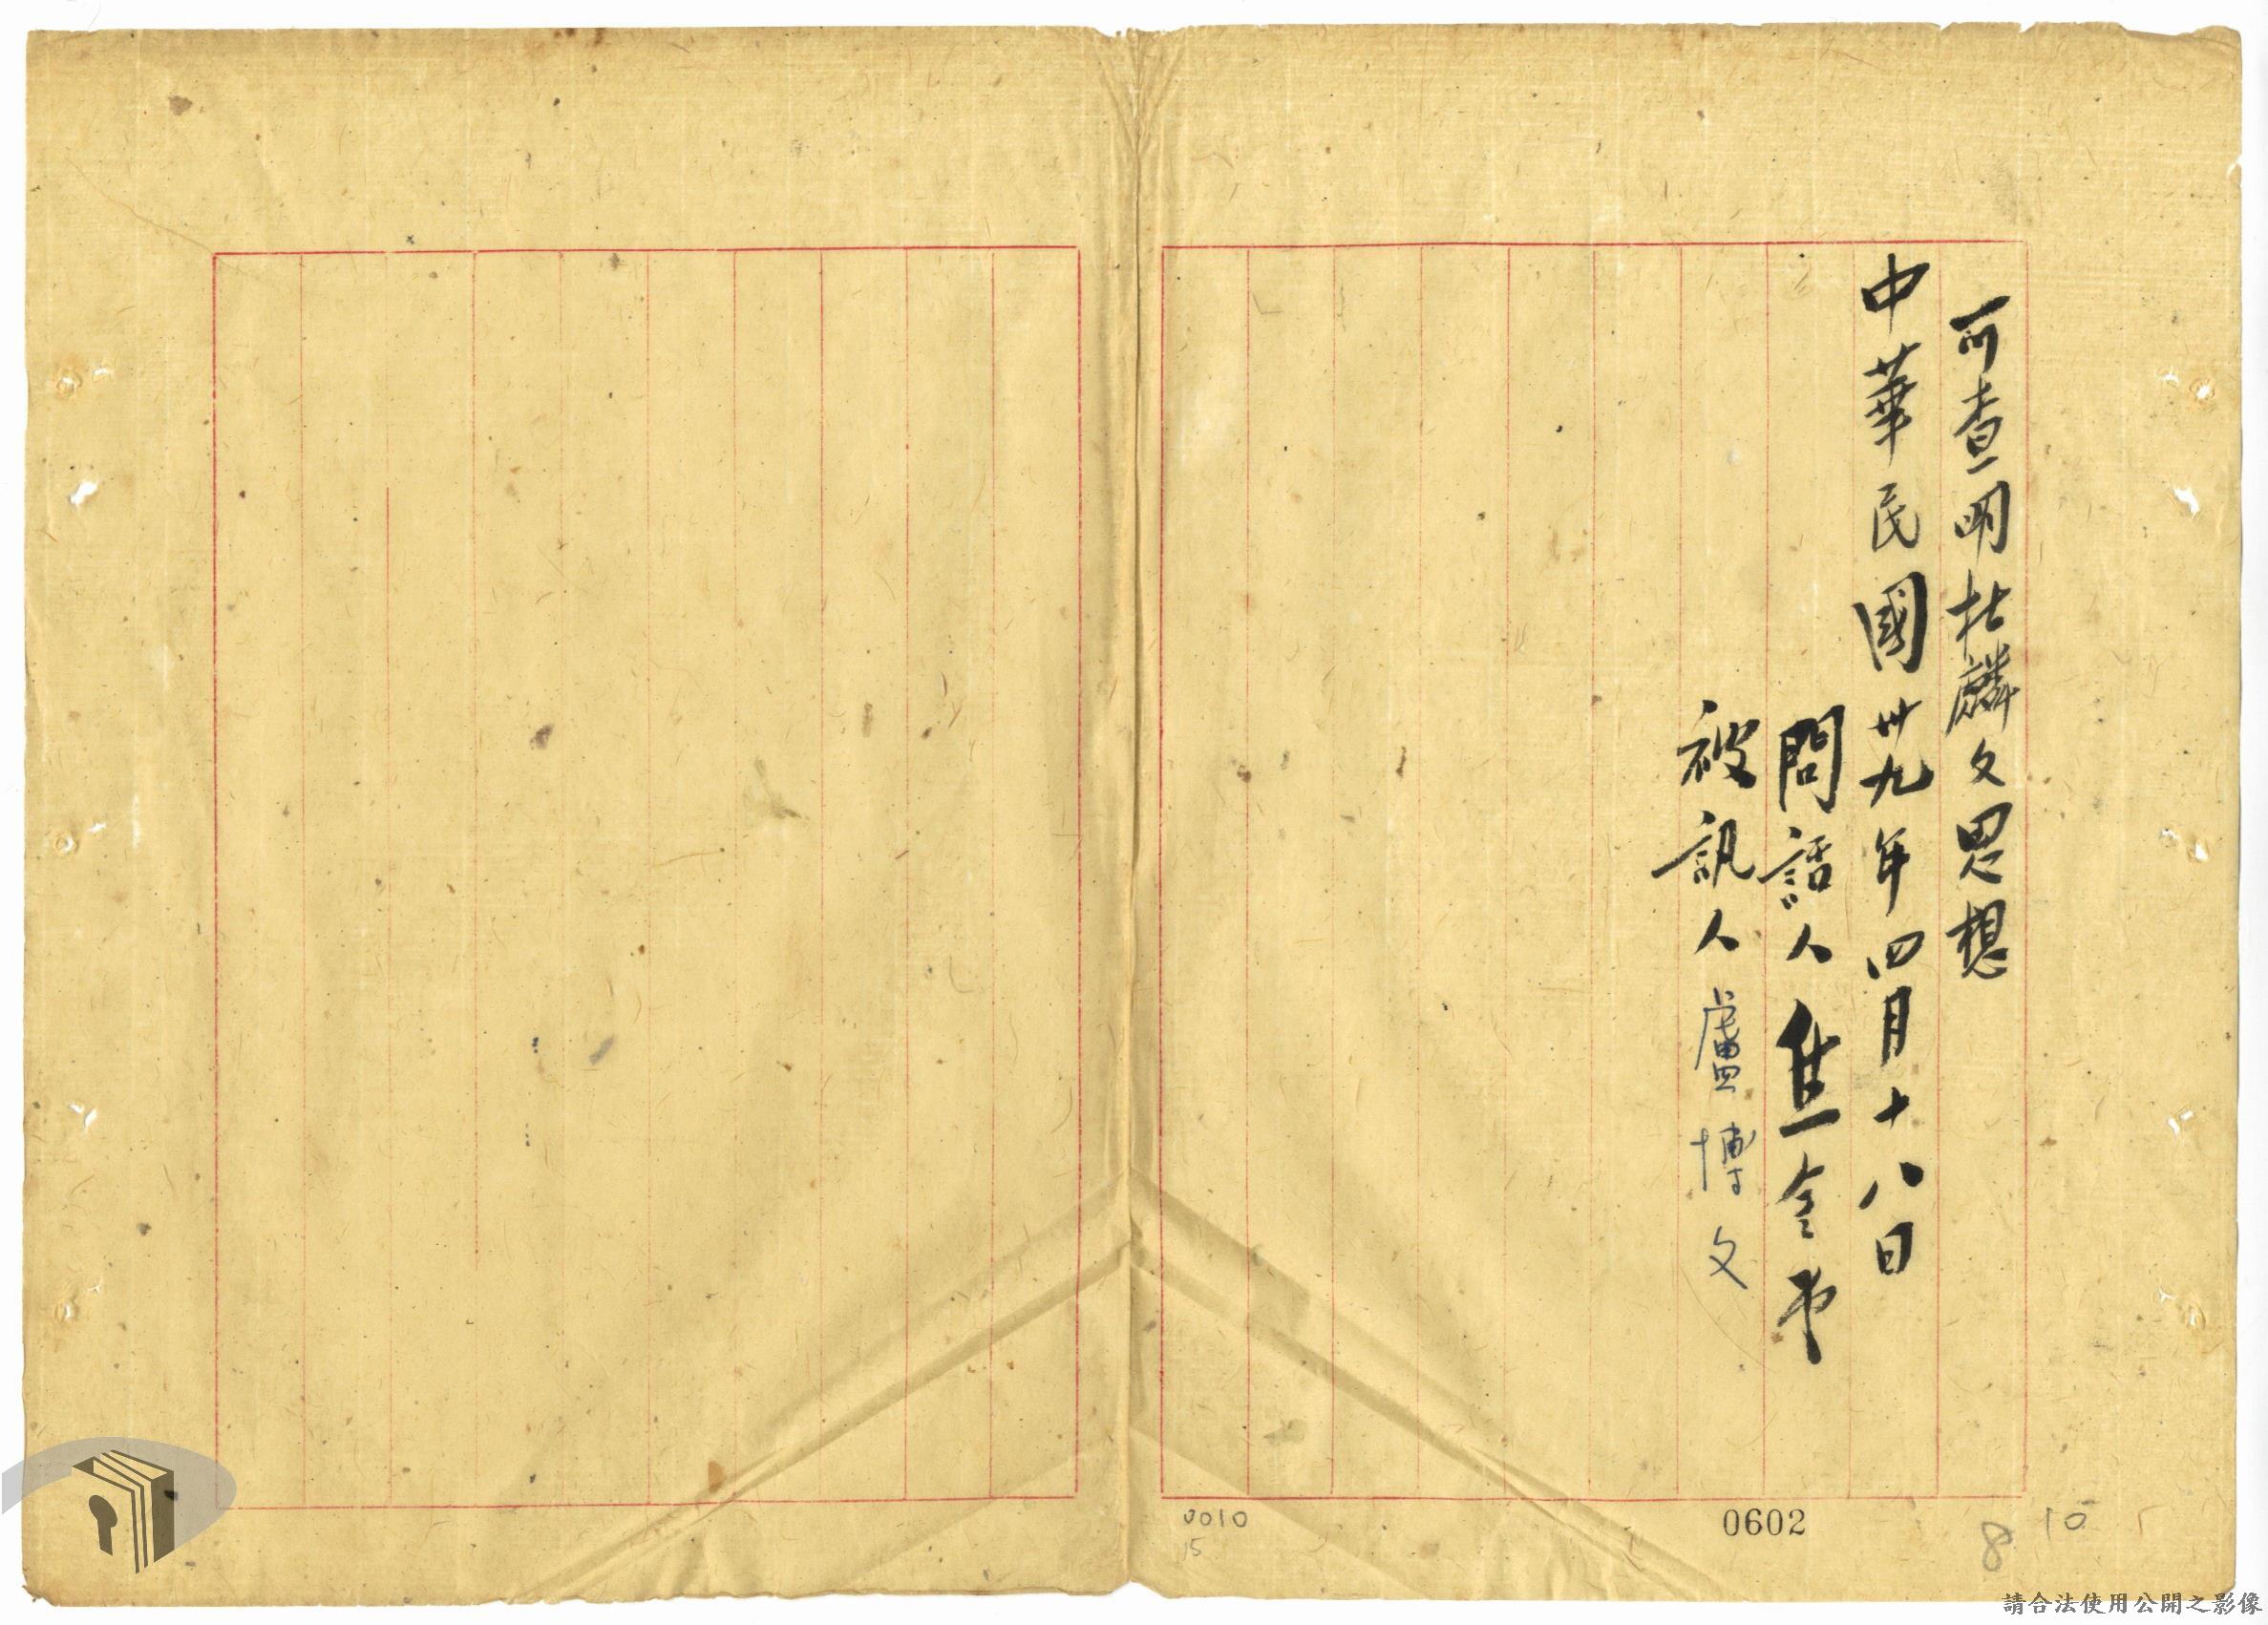 可查明杜麟文思想
中華民國卅九年四月十八日
問話人
被訊人盧博文
0010
15
0602
8
10
請合法使用公開之影像